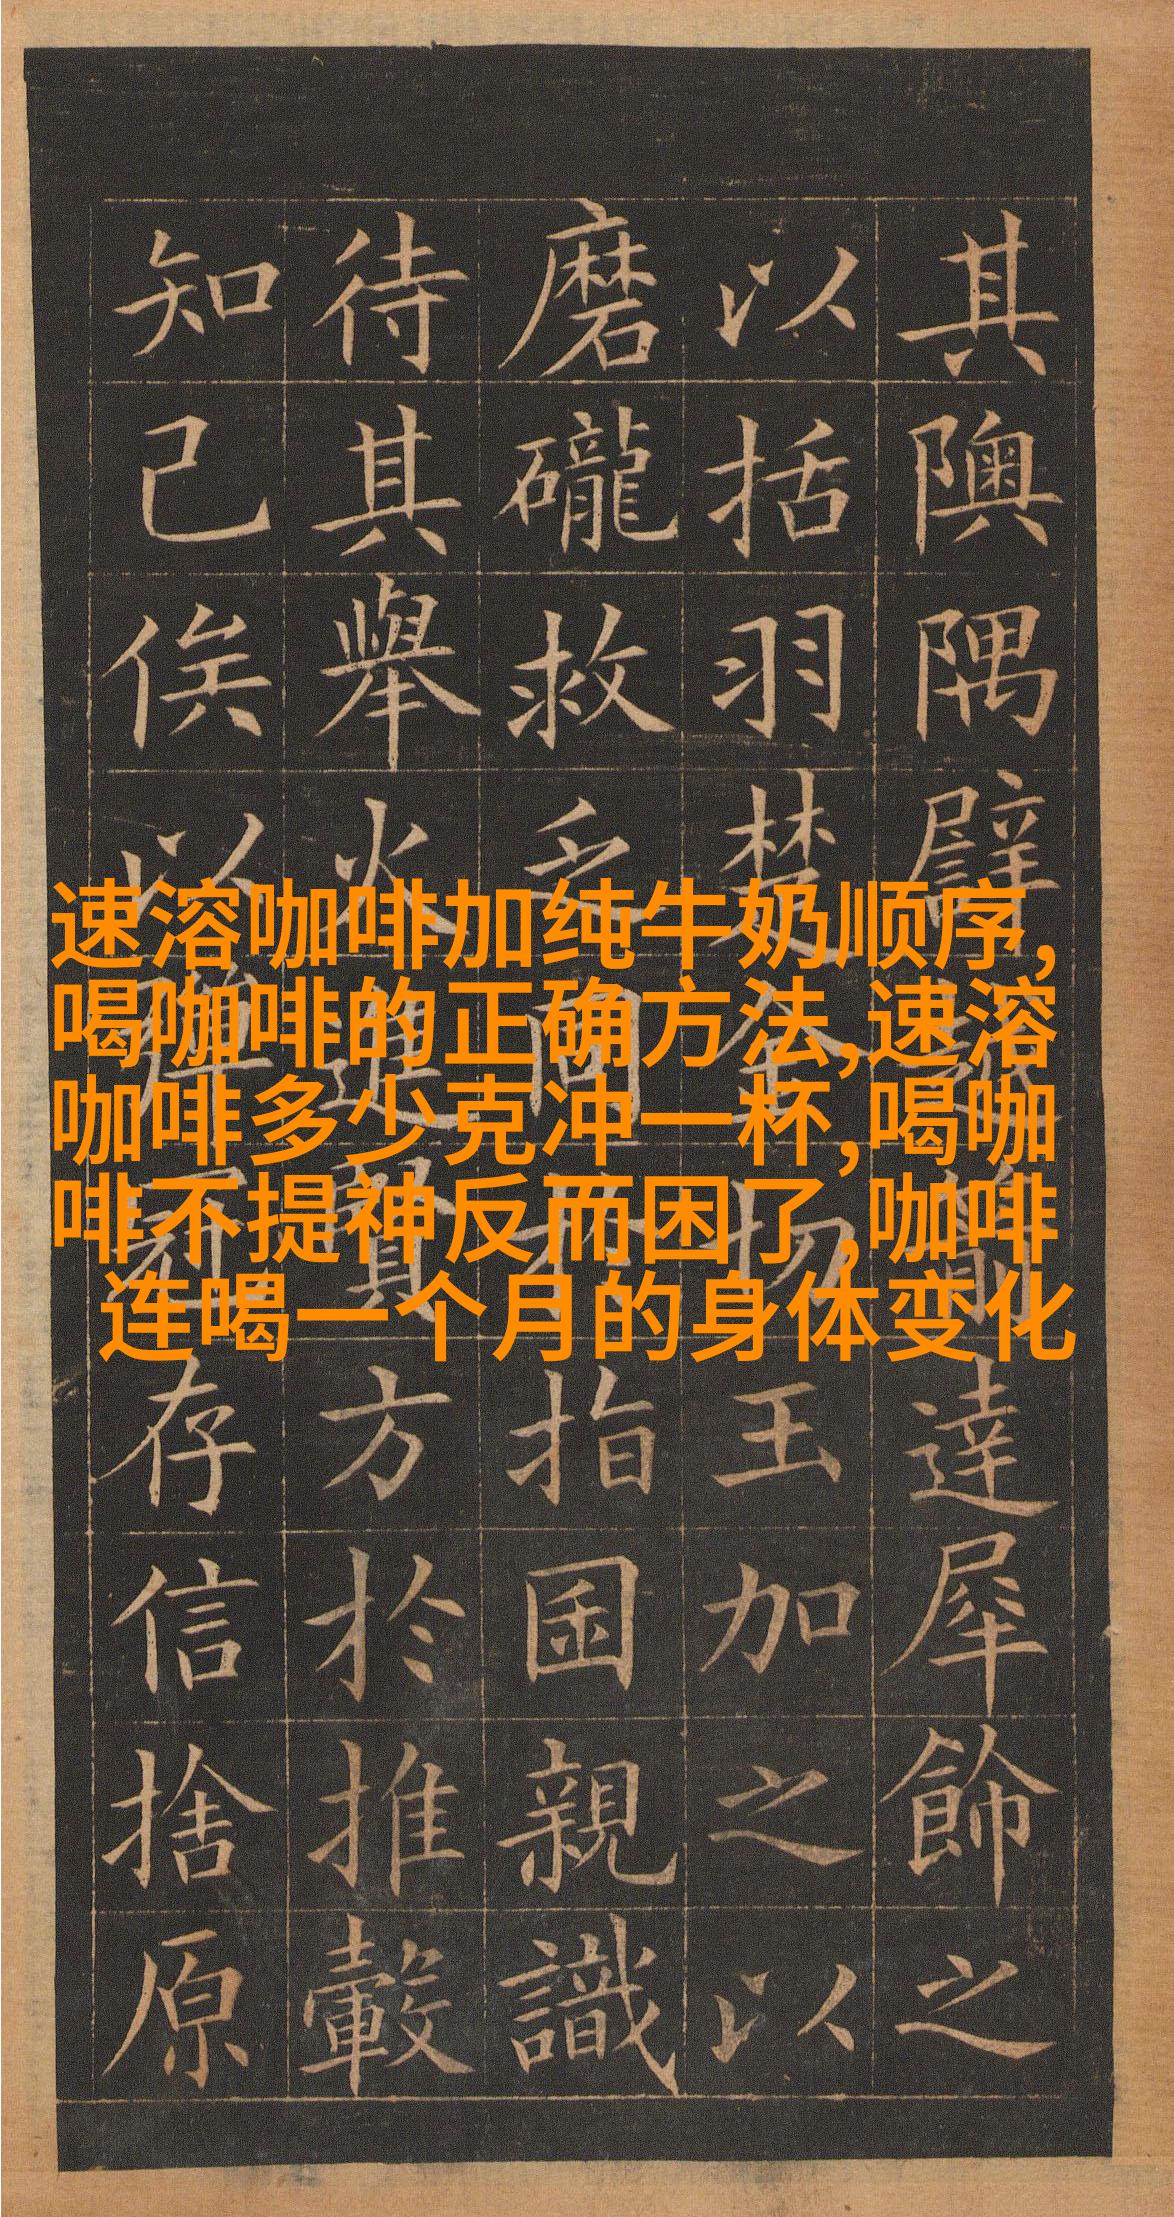 速溶咖啡加纯牛奶顺序,
喝咖啡的正确方法,速溶
咖啡多少克冲一杯,喝咖
啡不提神反而困了,咖啡
连喝一个月的身体变化
其隩隅譬箭達犀飾之
以括羽楚金切玉加之以
磨礲救乏同指囷親識
待其舉火進賢方於推轂
知己俟以彈冠存信捨原